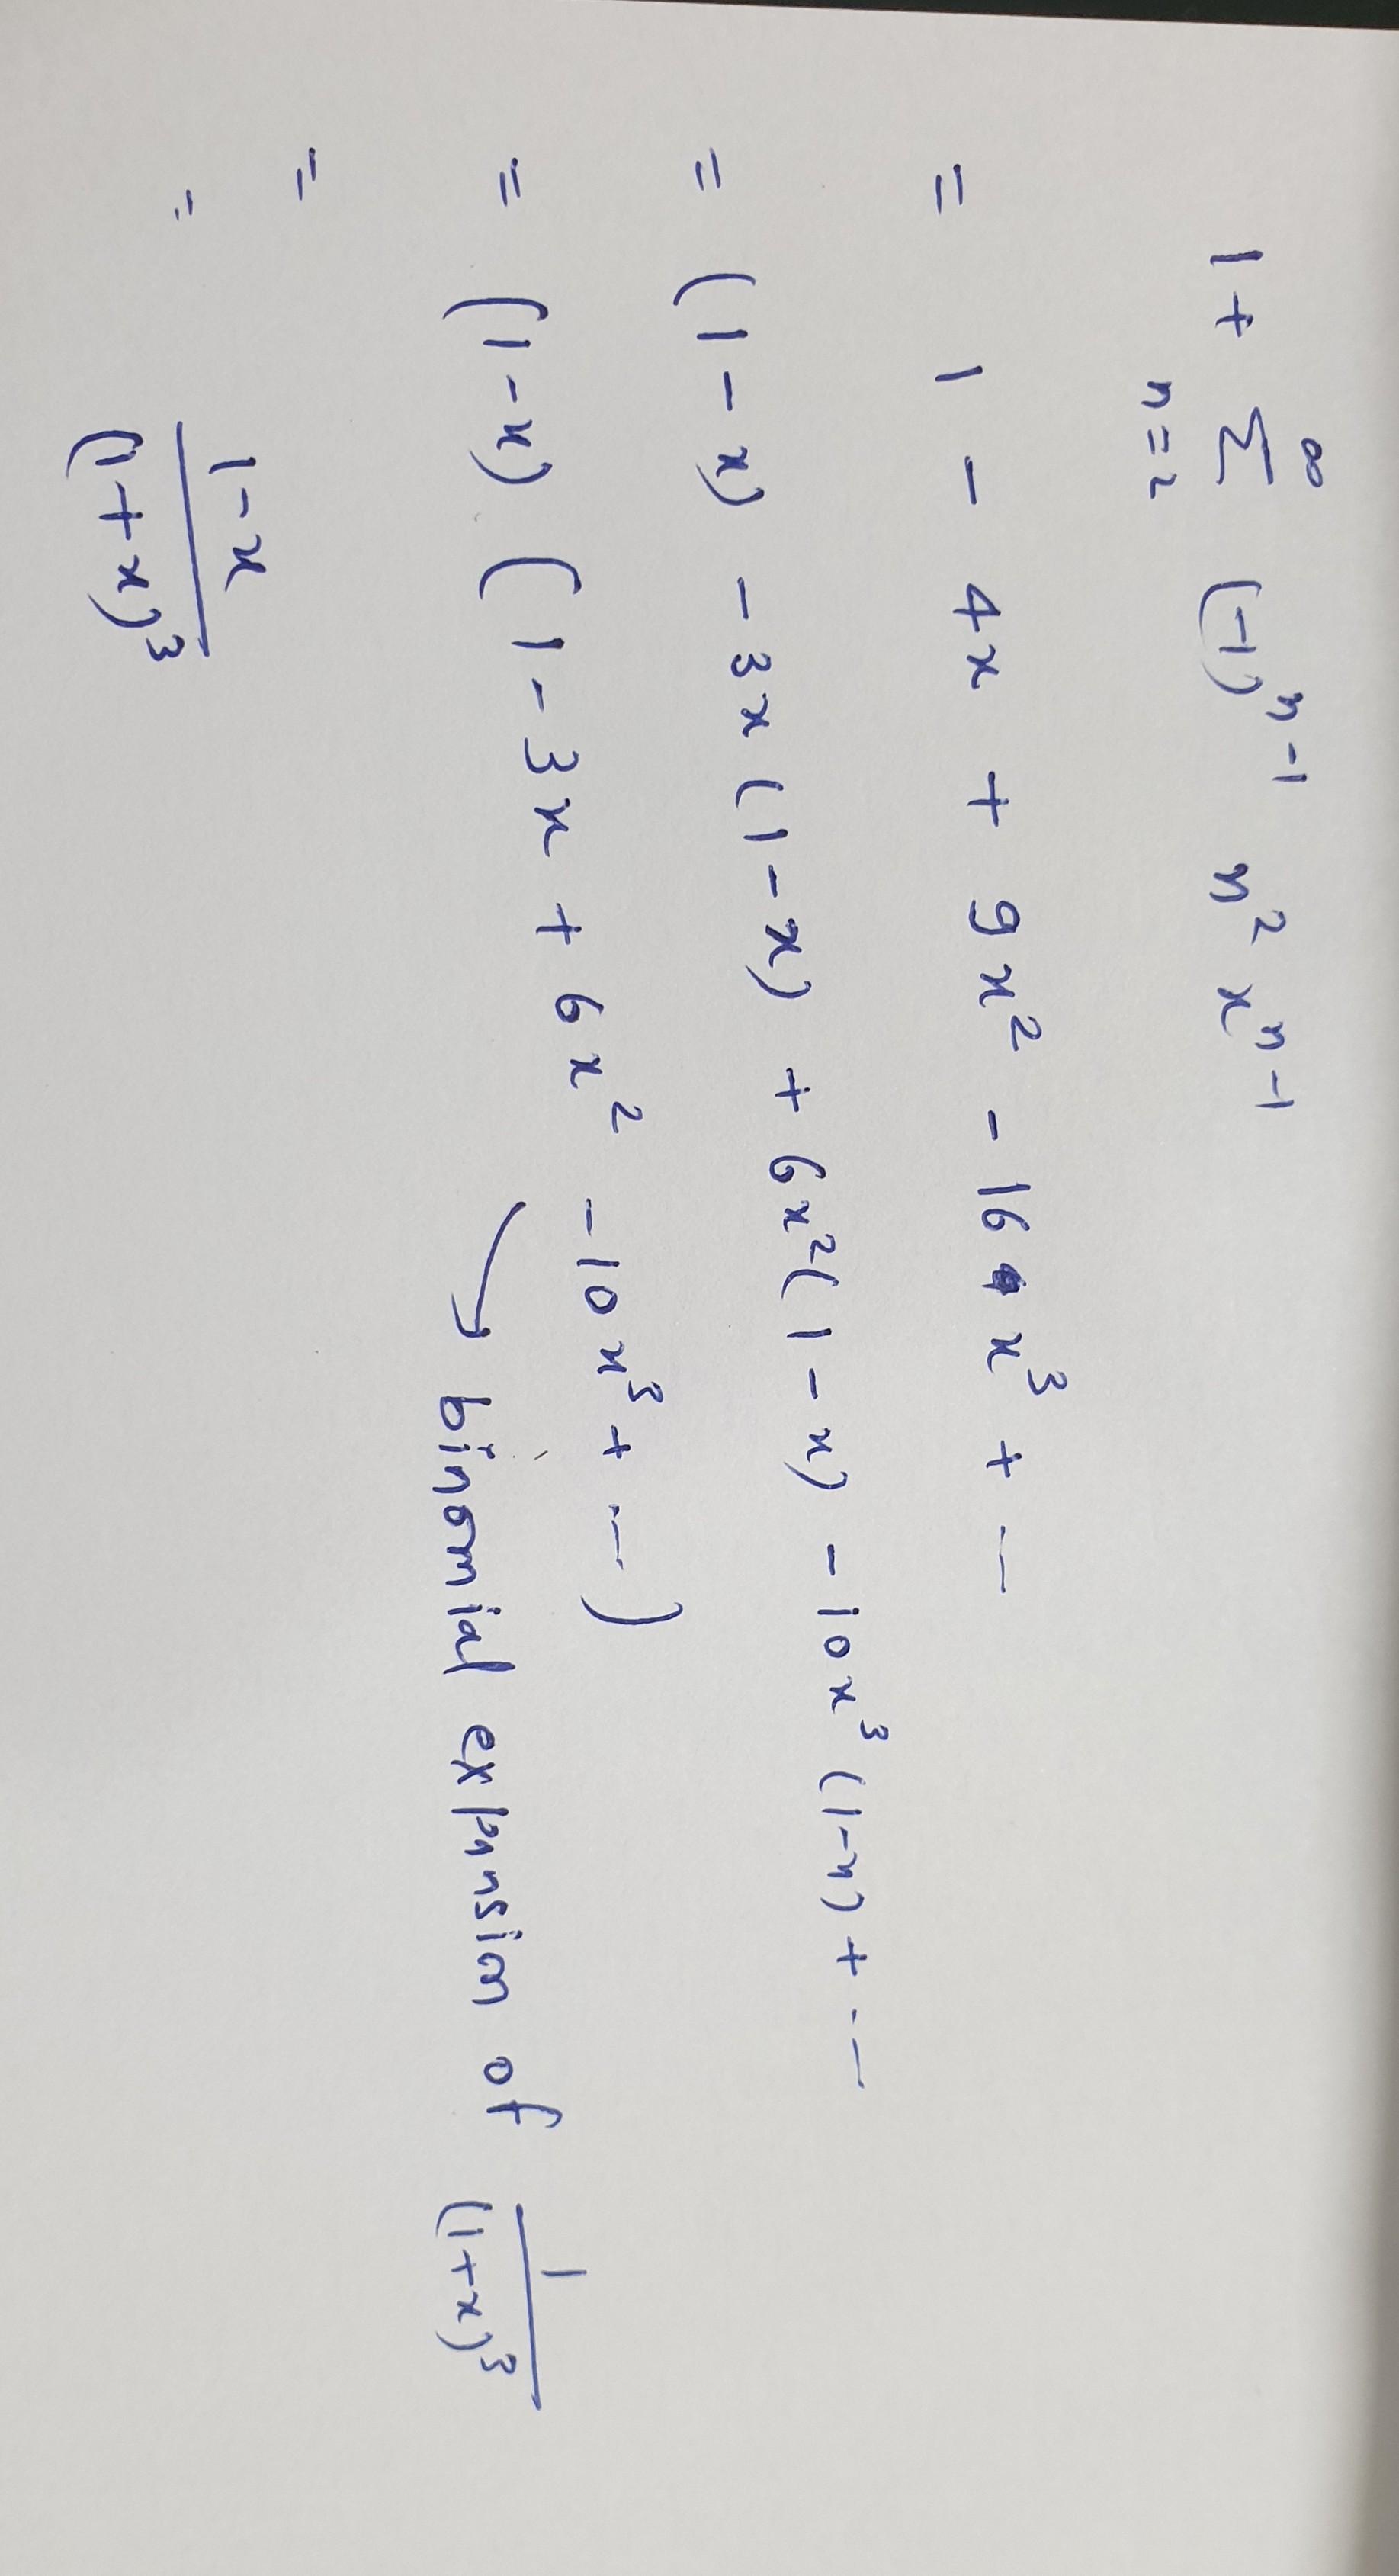 1 + ∑_{n=2}^{∞} (-1)^{n-1} n² x^{n-1}
= 1 - 4x + 9x² - 16 x³ + ...
= (1 - x) - 3x (1 - x) + 6x² (1 - x) - 10x³ (1-x) + ...
= (1-x) (1 - 3x + 6x² - 10x³ + ...)
→ binomial expansion of 1/(1+x)³
= (1-x)/(1+x)³